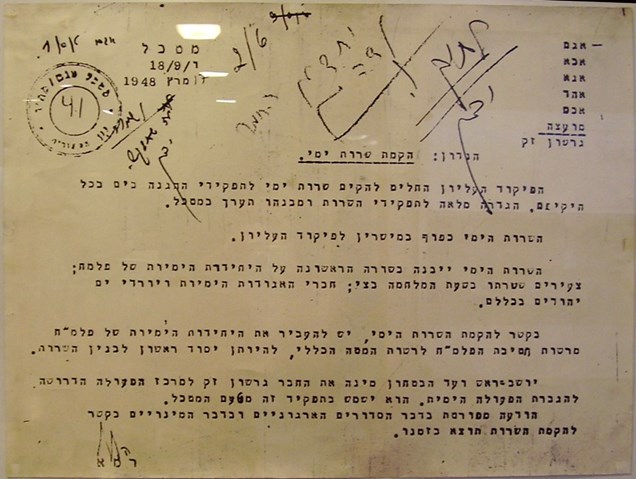 מטכ"ל
ו/18/9
17 מרץ 1948
2/6
אגם
אכא
אגא
אהד
אכם
מועצה
גרשון זק
41
הנדון: הקמת שרות ימי.
הפיקוד העליון החליט להקים שרות ימי לתפקידי ההגנה בים בכל
היקפם. הגדרה מלאה לתפקידי השרות ומבנהו תערך במטכל.
השרות הימי כפוף במישרין לפיקוד העליון.
השרות הימי ייבנה בשורה הראשונה על היחידות הימיות של פלמח;
צעירים ששרתו בשעת המלחמה בצי; חברי האגודות הימיות ויורדי ים
יהודים בכללם.
בקשר להקמת השרות הימי, יש להעביר את היחידות הימיות של פלמ"ח
מרשות חטיבת הפלמ"ח לרשות המטה הכללי, להיותן יסוד ראשון לבנין השרות.
יושב-ראש ועד הבטחון מינה את החבר גרשון זק למרכז הפעולה הדרושה
להגברת הפעולה הימית. הוא ישמש בתפקיד זה מטעם המטכל.
הודעה מפורטת בדבר הסדורים הארגוניים ובדבר המינויים בקשר
להקמת השרות תוצא בזמנו.
רמא